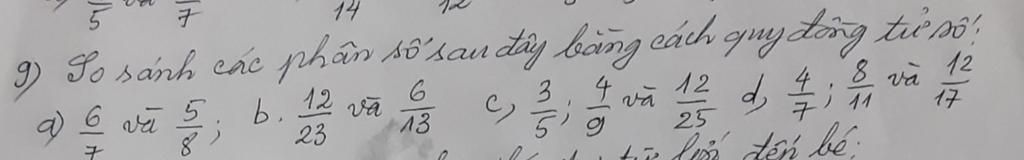 5 7 14 12
9) So sánh các phân số sau đây bằng cách quy đồng tử số:
a) 6/7 và 5/8; b. 12/23 và 6/13 c, 3/5; 4/9 và 12/25 d, 4/7; 8/11 và 12/17
đến bé.